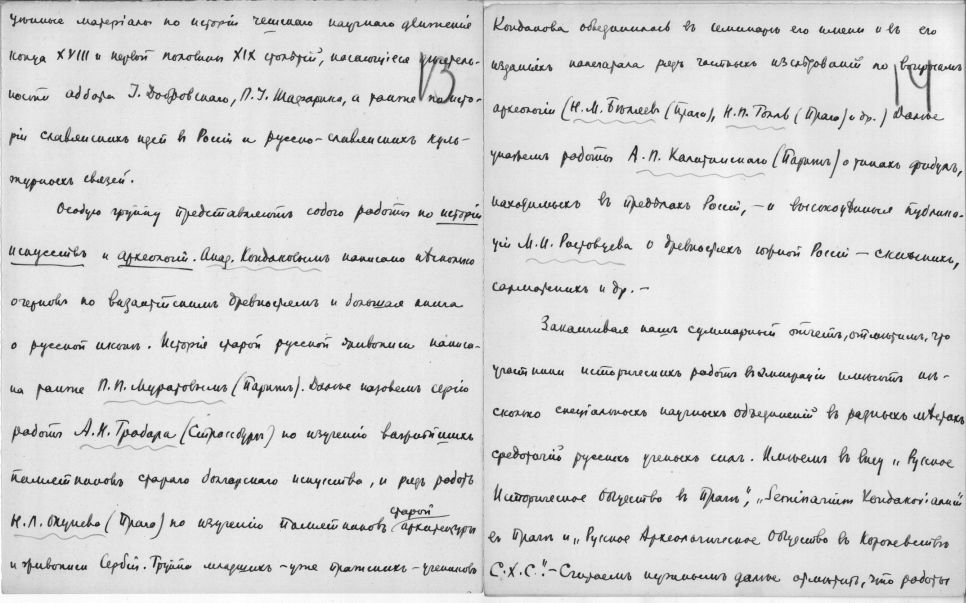 ченные матерiалы по исторiи чешскаго научнаго движенiя
конца XVIII и первой половины XIX столѣтiй, касающiеся дѣятель-
13
ности аббата I. Добровскаго, П. I. Шафарика, а также по исто-
рiи славянскихъ идей въ Россiи и русско-славянскихъ куль-
турныхъ связей.
Особую группу представляютъ собою работы по исторiи
искусствъ и археологiи. Акад. Кондаковымъ написано нѣсколько
очерковъ по византiйскимъ древностямъ и большая книга
о русской иконѣ. Исторiя старой русской живописи написа-
на также П. П. Муратовымъ (Парижъ). Далѣе назовемъ серiю
работъ А. Н. Грабара (Страссбургъ) по изученiю важнѣйшихъ
памятниковъ стараго болгарскаго искусства, и рядъ работъ
Н. Л. Окунева (Прага) по изученiю памятниковъ старой архитектуры
и живописи Сербiи. Группа младшихъ – уже пражскихъ – учениковъ
Кондакова объединилась въ семинарѣ его имени и въ его
изданiяхъ напечатала рядъ частныхъ изслѣдованiй по вопросамъ
14
археологiи (Н. М. Бѣляевъ (Прага), Н. П. Толль (Прага) и др.) Далѣе
укажемъ работы А. П. Калитинскаго (Парижъ) о типахъ фибулъ,
находимыхъ въ предѣлахъ Россiи, – и высокоцѣнныя публика-
цiи М. И. Ростовцева о древностяхъ южной Россiи – скиѳскихъ,
сарматскихъ и др. –
Заканчивая нашъ суммарный отчетъ, отмѣтимъ, что
участники историческихъ работъ въ эмиграцiи имѣютъ нѣ-
сколько спецiальныхъ научныхъ объединенiй въ разныхъ мѣстахъ
средоточiй русскихъ ученыхъ силъ. Имѣемъ въ виду „Русское
Историческое Общество въ Прагѣ", „Seminarium Kondakovianum"
въ Прагѣ и „Русское Археологическое Общество въ Королевствѣ
С.Х.С." – Считаемъ нужнымъ далѣе отмѣтить, что работы